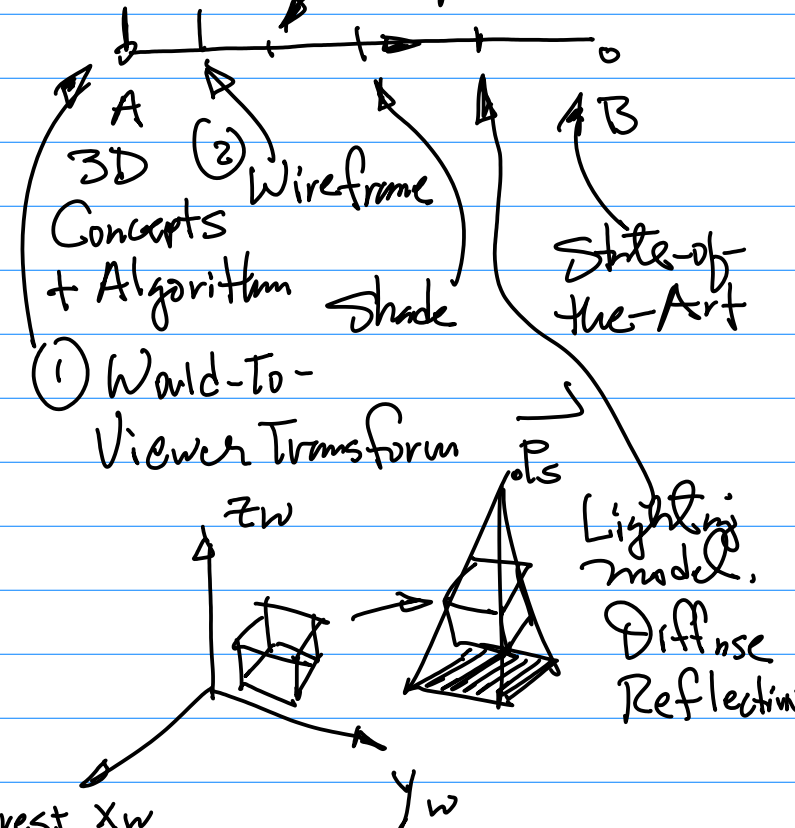 A
B
3D
Concepts
+ Algorithm
② Wireframe
Shade
State-of-
the-Art
① World-To-
Viewer Transform
Ps
Lighting
model.
Diffuse
Reflection
Zw
Yw
Xw